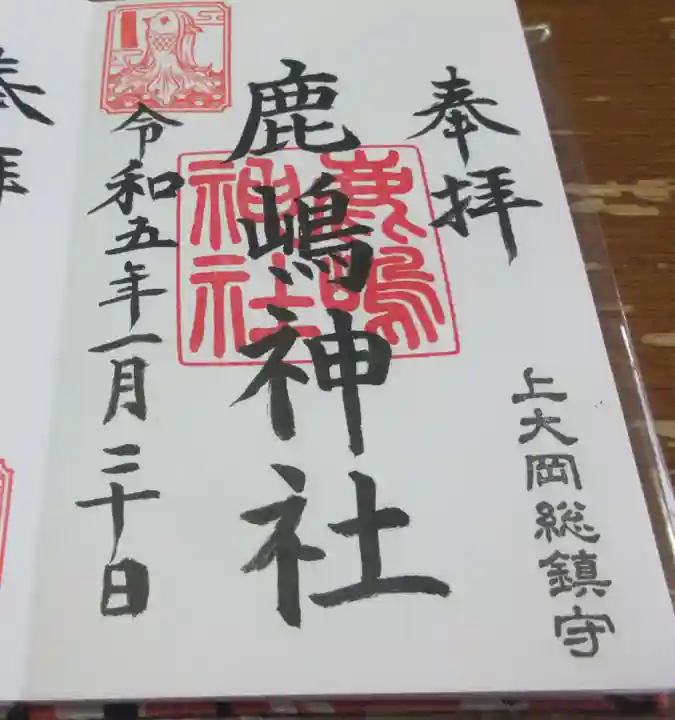 奉拝
上大岡総鎮守
鹿嶋神社
鹿嶋
神社
令和五年一月二十日
奉拝